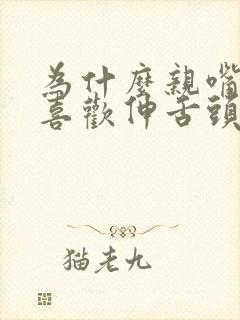 為什麼親嘴
喜歡伸舌頭
猫老九